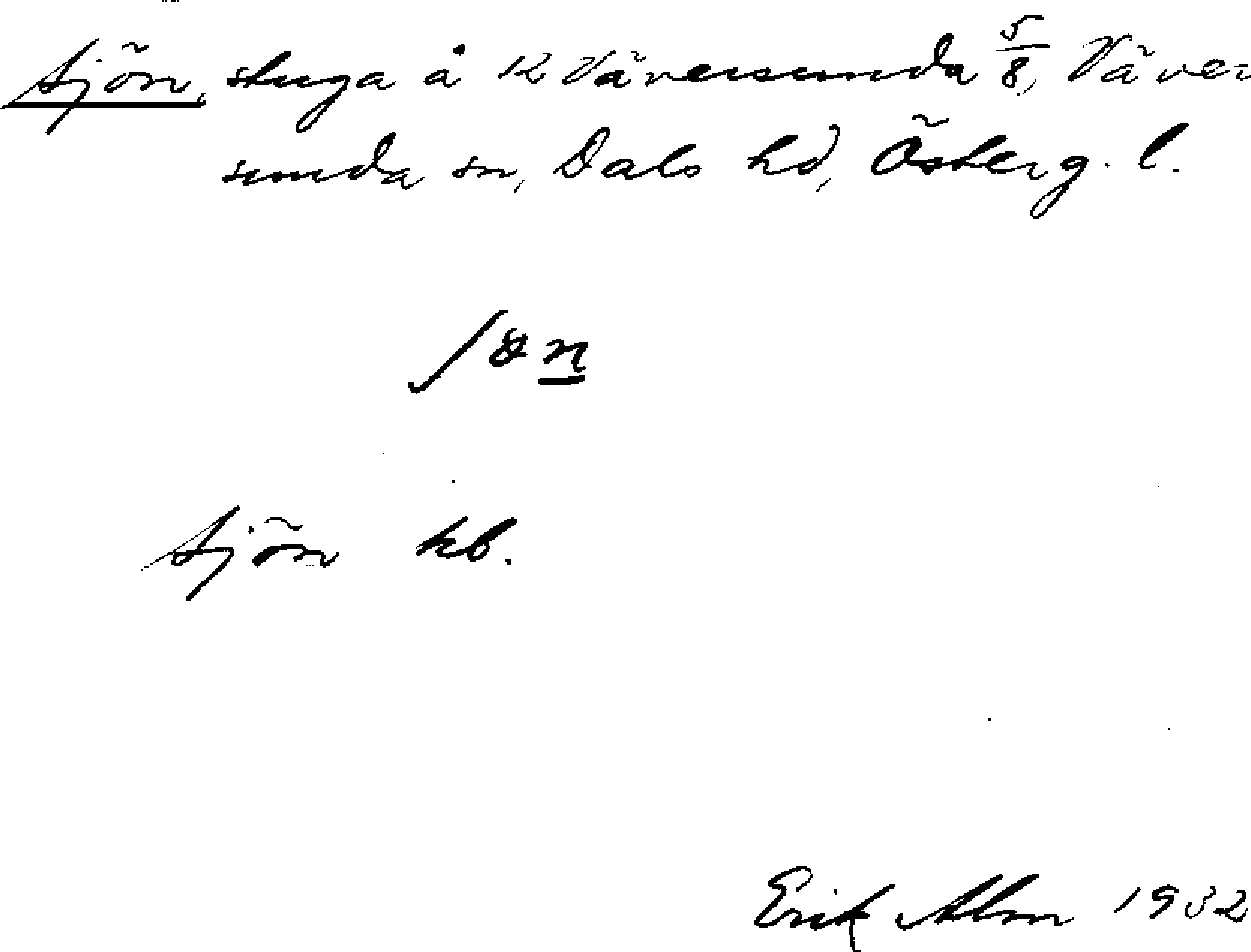 Sjön, stuga å 12 Väversunda 5/8, Väver
sunda sn, Dals hd, Österg. l.
Sjön kb.
Erik Alm 1932